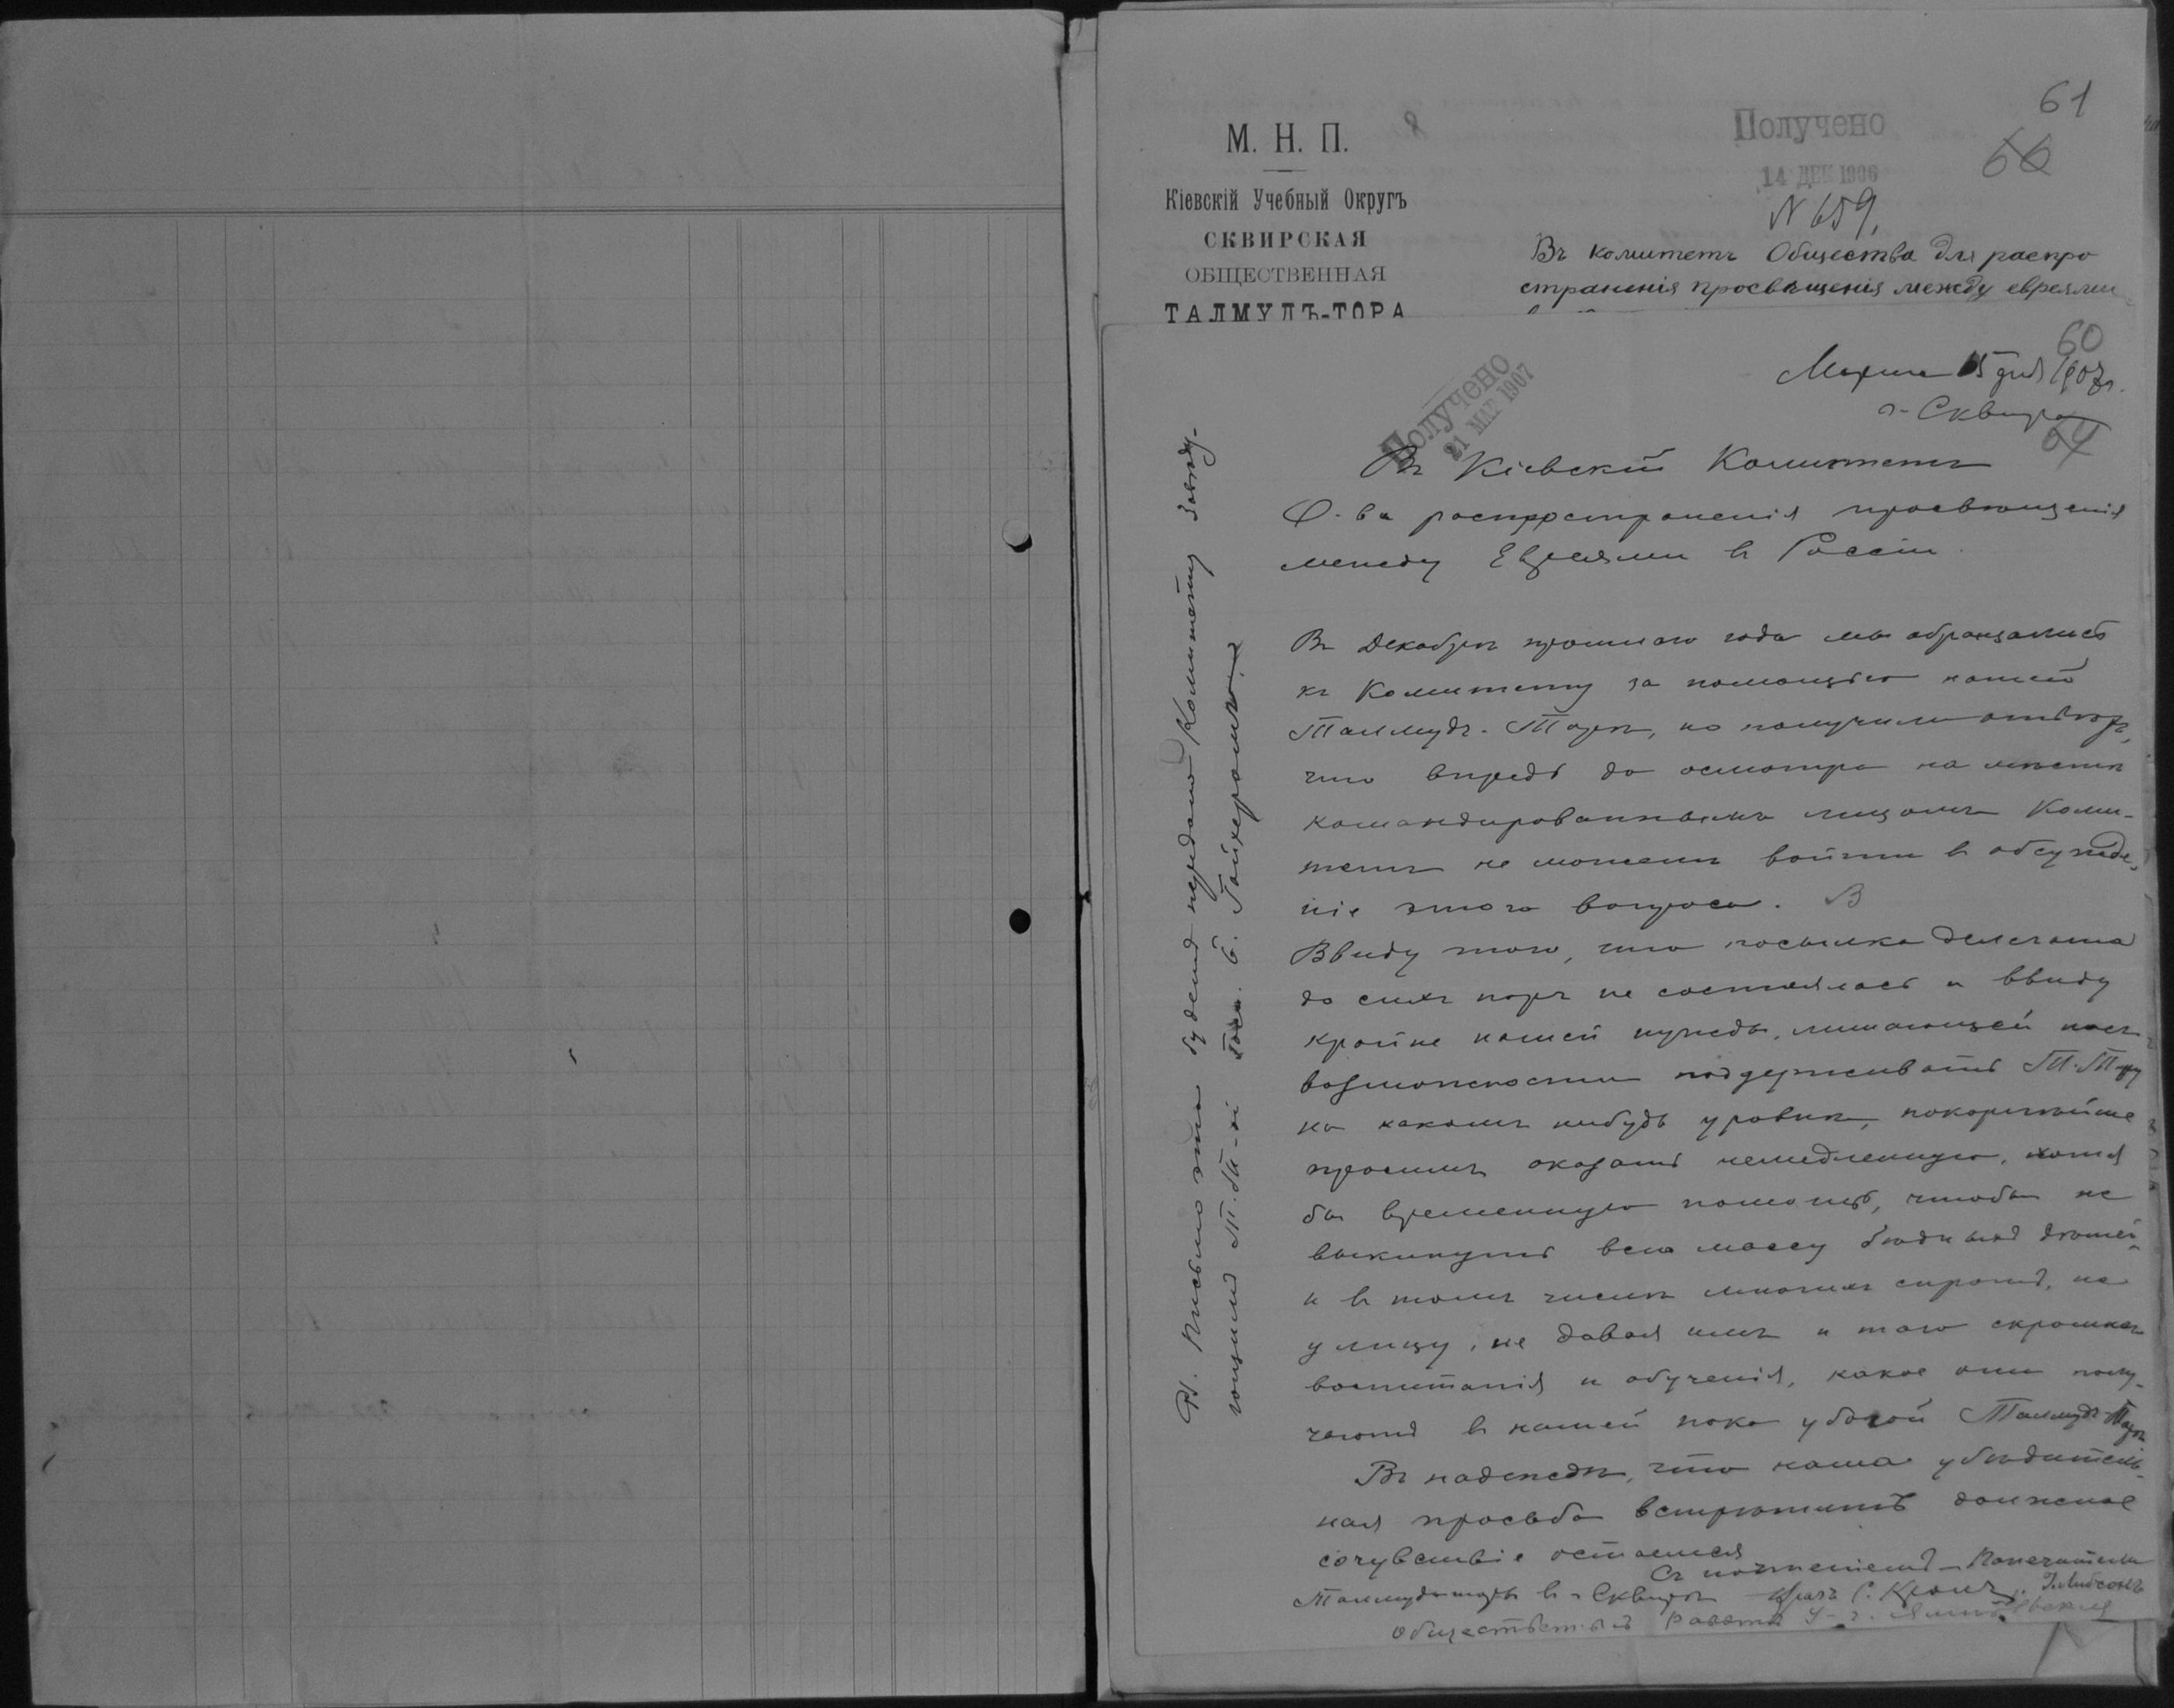 61
66
М. Н. П.
Кіевскій Учебный Округъ
СКВИРСКАЯ
ОБЩЕСТВЕННАЯ
ТАЛМУДЪ-ТОРА
Получено
14 ДЕК 1906
N 659.
Въ комитетъ Общества для распро
страненія просвѣщенія между евреями
60
Марта 15 дня 1907 г.
г. Сквира
64
Получено
21 МАР 1907
Въ Кіевскій Комитетъ
О-ва распространенія просвѣщенія
между Евреями в Россіи.
Въ Декабрѣ прошлаго года мы обращались
къ Комитету за помощью нашей
Талмудъ-Торѣ, но получили отвѣтъ,
что впредь до осмотра на мѣстѣ
командированнымъ лицомъ Коми-
тетъ не можетъ войти в обсужде-
ніе этого вопроса. В
Ввиду того, что посылка делегата
до сихъ поръ не состоялась и ввиду
крайне нашей нужды, лишающей насъ
возможности поддерживать Т. Тору
на какомъ нибудь уровнѣ, покорнѣйше
просимъ оказать немедленную, хотя
бы временную помощь, чтобы не
выкинуть всю массу бѣдныхъ дѣтей,
и в томъ числѣ многихъ сиротъ, на
улицу, не давая имъ и того скромнаго
воспитанія и обученія, какое они полу-
чаютъ в нашей пока убогой Талмудъ-Торѣ
Въ надеждѣ, что наша убѣдитель-
ная просьба встрѣтитъ должное
сочувствіе остаемся
Съ почтеніемъ Попечители
Талмудъ-торы в г. Сквирѣ Врач С. Кролъ, Э. Либсонъ
Общественный раввинъ
Письмо это будетъ передано Комитету завѣду-
ющимъ Т. Т-ой Госп. Б. Гойхерманомъ